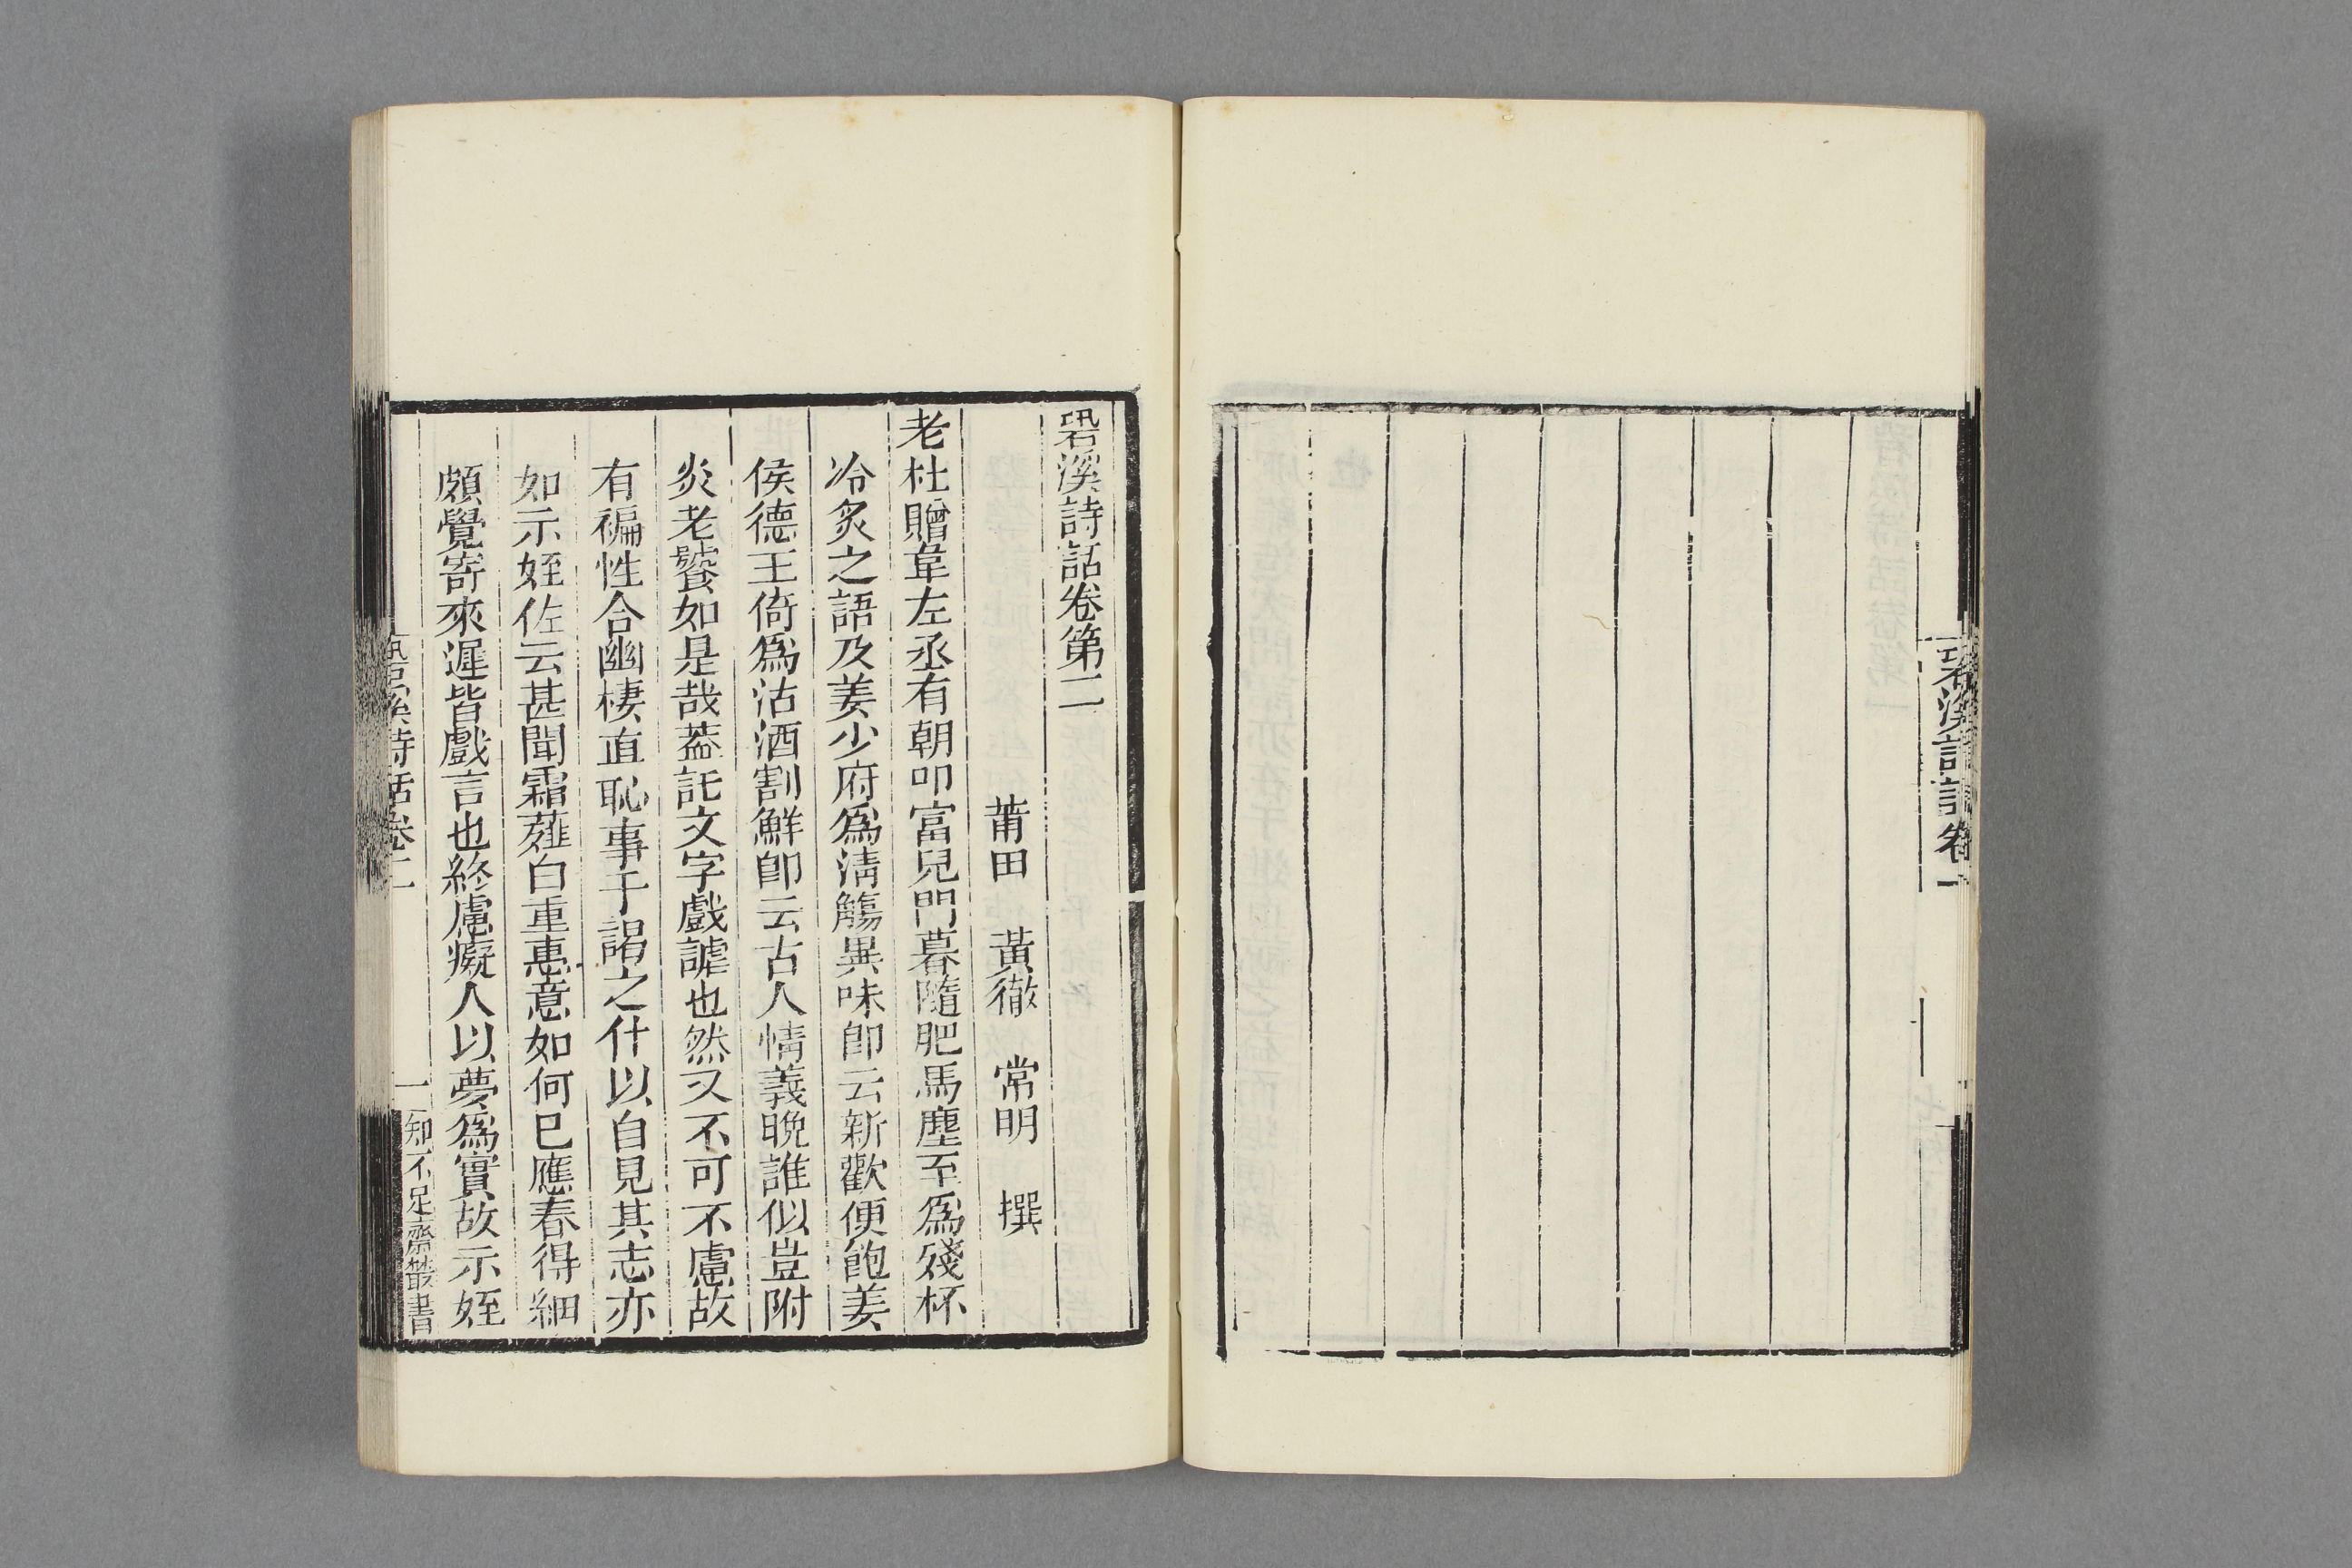 䂬溪詩話卷一
䂬溪詩話卷第二
莆田　黃徹　常明　撰
老杜贈韋左丞有朝叩富兒門暮隨肥馬塵至爲殘杯
冷炙之語及姜少府爲淸觴異味卽云新歡便飽姜
侯德王倚爲沽酒割鮮卽云古人情義晚誰似豈附
炎老饕如是哉蓋託文字戲謔也然又不可不慮故
有褊性合幽棲直恥事干謁之什以自見其志亦
如示姪佐云甚聞霜薤白重惠意如何已應春得細
頗覺寄來遲皆戲言也終慮癡人以夢爲實故示姪
䂬溪詩話卷二
一
知不足齋叢書